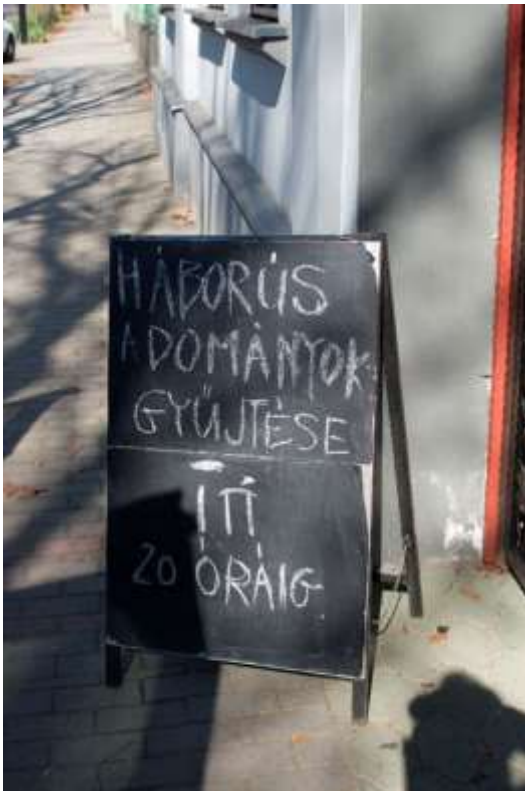 HÁBORÚS
ADOMÁNYOK
GYŰJTÉSE
ITT
20 ÓRÁIG